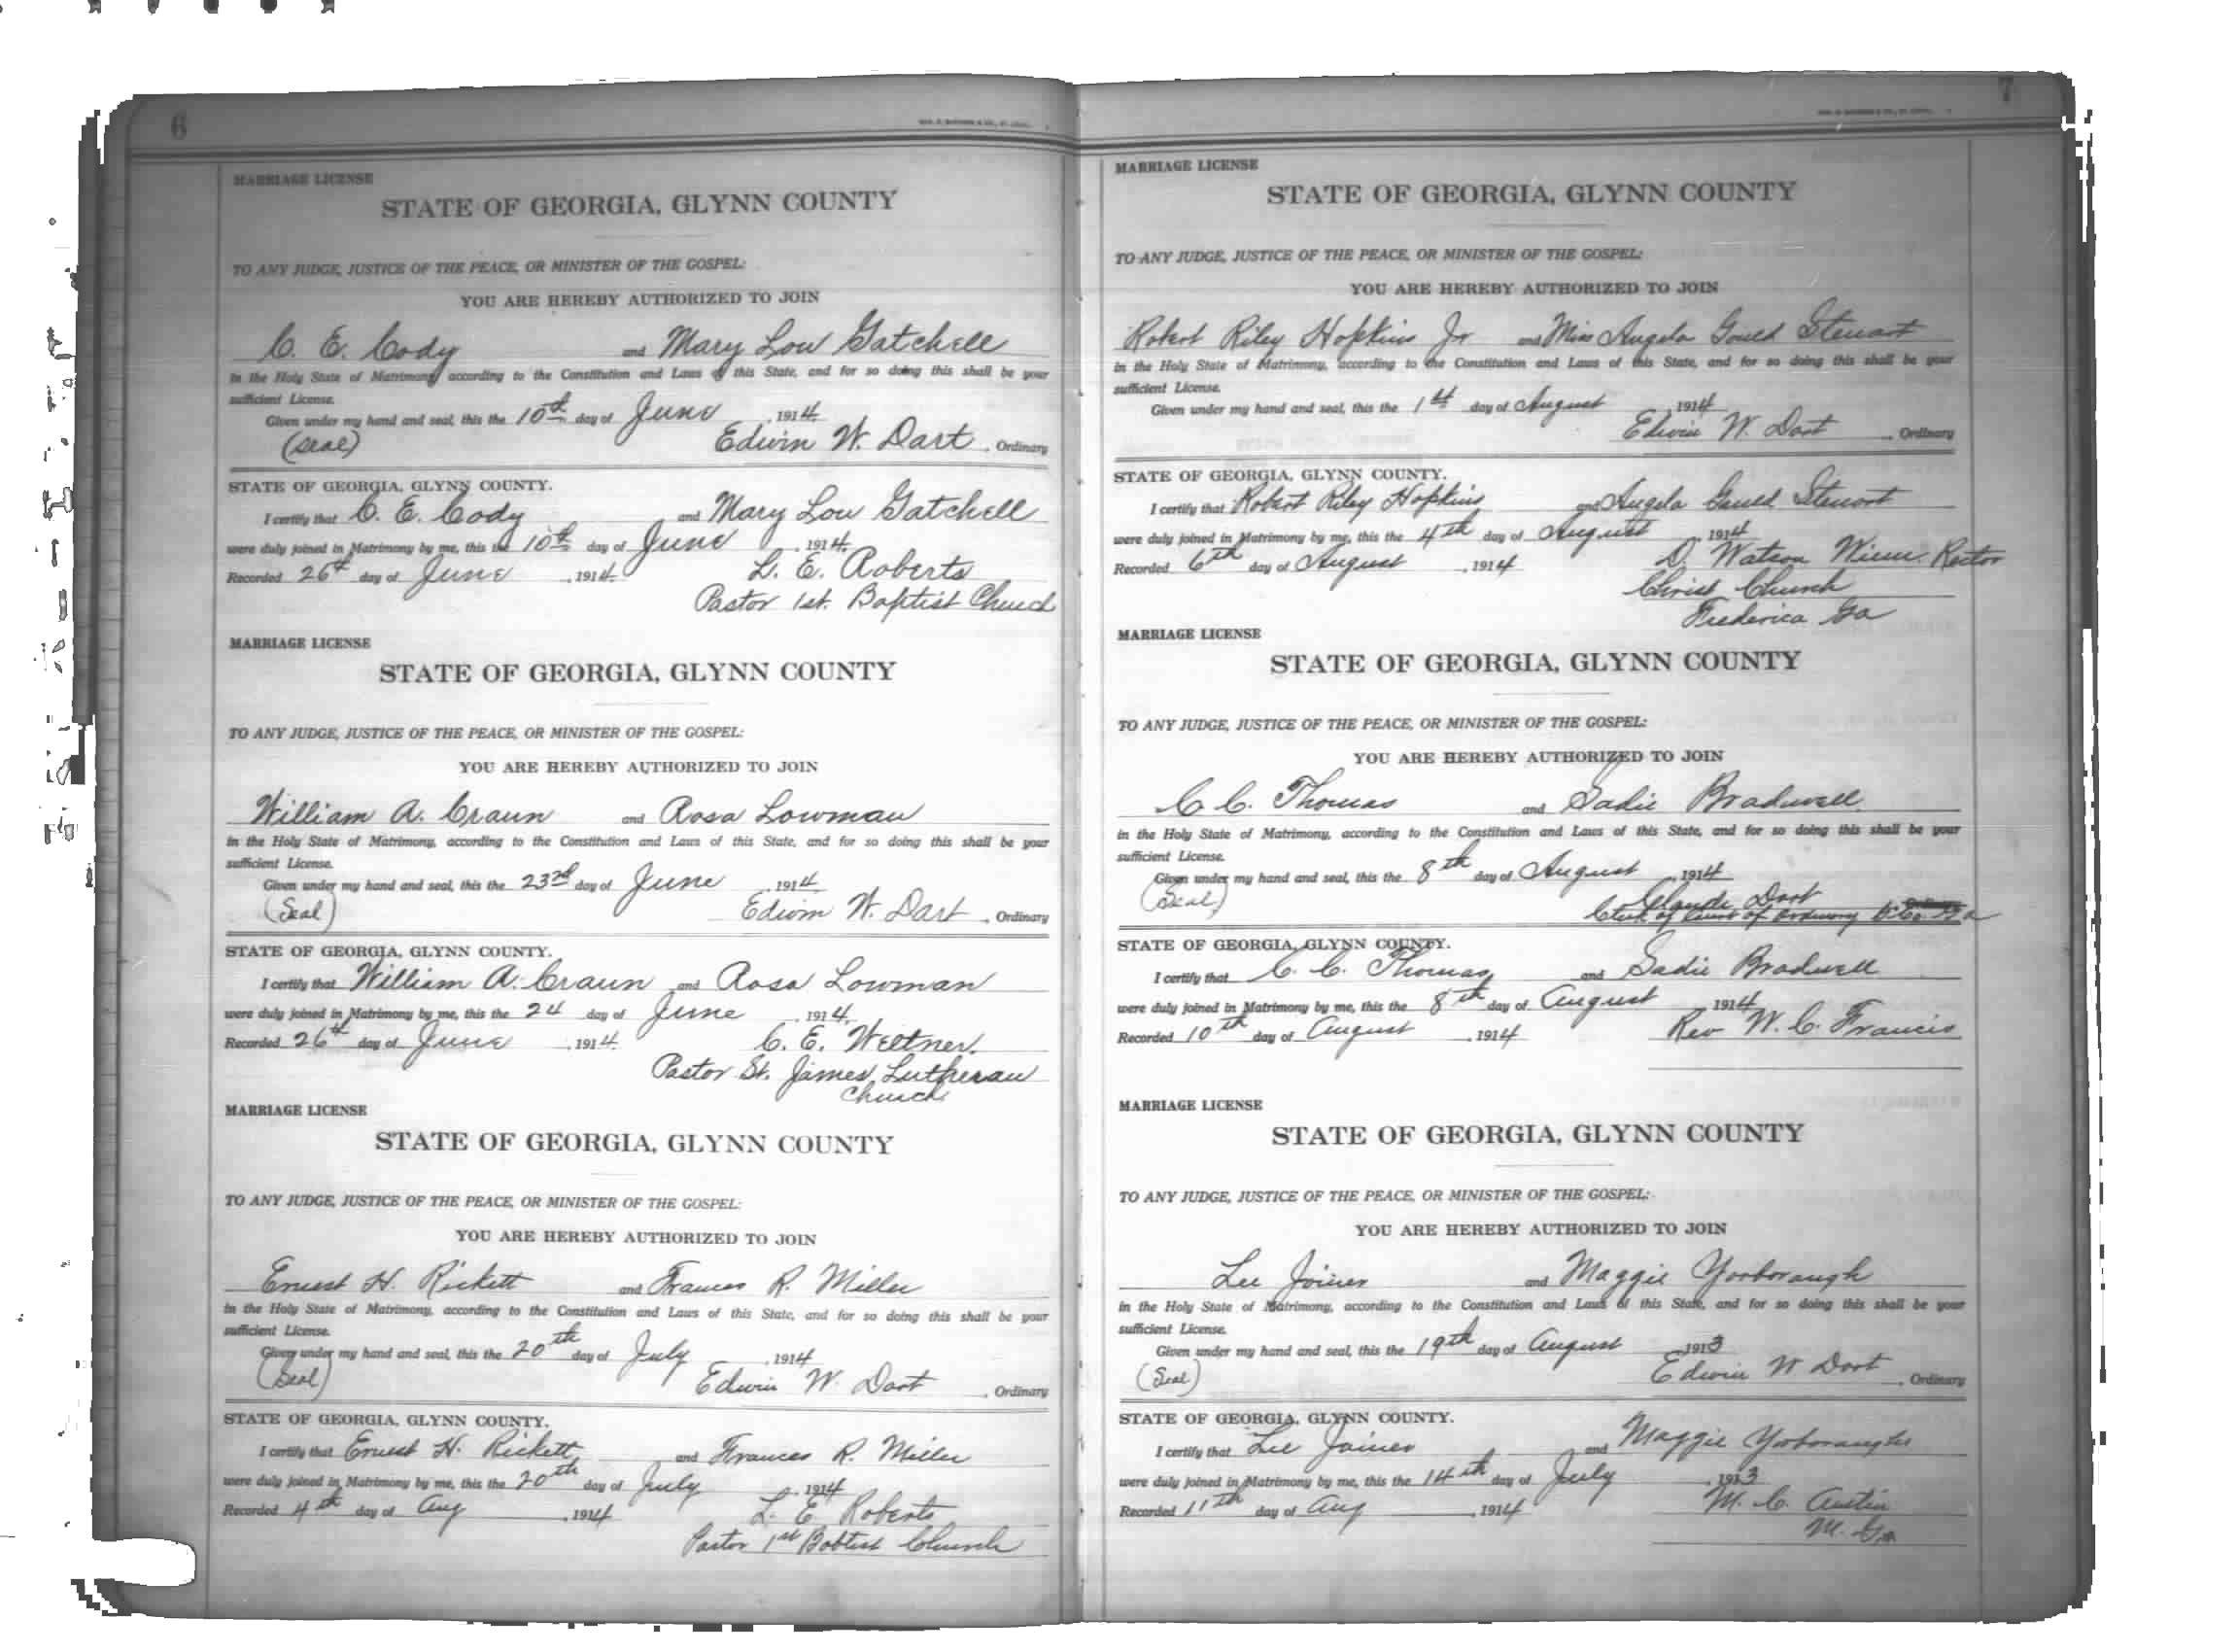 6
MARRIAGE LICENSE
STATE OF GEORGIA, GLYNN COUNTY
TO ANY JUDGE, JUSTICE OF THE PEACE, OR MINISTER OF THE GOSPEL:
YOU ARE HEREBY AUTHORIZED TO JOIN
C. E. Cody and Mary Lou Gatchell
in the Holy State of Matrimony, according to the Constitution and Laws of this State, and for so doing this shall be your
sufficient License.
Given under my hand and seal, this the 10th day of June, 1914.
(Seal) Edwin W. Dart, Ordinary
STATE OF GEORGIA, GLYNN COUNTY.
I certify that C. E. Cody and Mary Lou Gatchell
were duly joined in Matrimony by me, this the 10th day of June, 1914.
Recorded 26th day of June, 1914. L. E. Roberts
Pastor 1st. Baptist Church
MARRIAGE LICENSE
STATE OF GEORGIA, GLYNN COUNTY
TO ANY JUDGE, JUSTICE OF THE PEACE, OR MINISTER OF THE GOSPEL:
YOU ARE HEREBY AUTHORIZED TO JOIN
William A. Craun and Rosa Lowman
in the Holy State of Matrimony, according to the Constitution and Laws of this State, and for so doing this shall be your
sufficient License.
Given under my hand and seal, this the 23rd day of June, 1914
(Seal) Edwin W. Dart, Ordinary
STATE OF GEORGIA, GLYNN COUNTY.
I certify that William A. Craun and Rosa Lowman
were duly joined in Matrimony by me, this the 24 day of June, 1914.
Recorded 26th day of June, 1914. C. E. Weltner.
Pastor St. James Lutheran
Church
MARRIAGE LICENSE
STATE OF GEORGIA, GLYNN COUNTY
TO ANY JUDGE, JUSTICE OF THE PEACE, OR MINISTER OF THE GOSPEL:
YOU ARE HEREBY AUTHORIZED TO JOIN
Ernest H. Rickett and Frances R. Miller
in the Holy State of Matrimony, according to the Constitution and Laws of this State, and for so doing this shall be your
sufficient License.
Given under my hand and seal, this the 20th day of July, 1914
(Seal) Edwin W. Dart, Ordinary
STATE OF GEORGIA, GLYNN COUNTY.
I certify that Ernest H. Rickett and Frances R. Miller
were duly joined in Matrimony by me, this the 20th day of July, 1914
Recorded 4th day of Aug, 1914 L. E. Roberts
Pastor 1st Babtist Church
7
MARRIAGE LICENSE
STATE OF GEORGIA, GLYNN COUNTY
TO ANY JUDGE, JUSTICE OF THE PEACE, OR MINISTER OF THE GOSPEL:
YOU ARE HEREBY AUTHORIZED TO JOIN
Robert Riley Hopkins Jr and Miss Angela Gould Steuart
in the Holy State of Matrimony, according to the Constitution and Laws of this State, and for so doing this shall be your
sufficient License.
Given under my hand and seal, this the 1st day of August, 1914
Edwin W. Dart, Ordinary
STATE OF GEORGIA, GLYNN COUNTY.
I certify that Robert Riley Hopkins and Angela Gould Steuart
were duly joined in Matrimony by me, this the 4th day of August, 1914
Recorded 6th day of August, 1914 D. Watson Rector
Christ Church
Frederica Ga
MARRIAGE LICENSE
STATE OF GEORGIA, GLYNN COUNTY
TO ANY JUDGE, JUSTICE OF THE PEACE, OR MINISTER OF THE GOSPEL:
YOU ARE HEREBY AUTHORIZED TO JOIN
C C. Thomas and Sadie Bradwell
in the Holy State of Matrimony, according to the Constitution and Laws of this State, and for so doing this shall be your
sufficient License.
Given under my hand and seal, this the 8th day of August, 1914
(Seal) Claude Dart
Clerk of Court of Ordinary G. Co. Ga
STATE OF GEORGIA, GLYNN COUNTY.
I certify that C. C. Thomas and Sadie Bradwell
were duly joined in Matrimony by me, this the 8th day of August, 1914
Recorded 10th day of August, 1914 Rev W. C. Francis
MARRIAGE LICENSE
STATE OF GEORGIA, GLYNN COUNTY
TO ANY JUDGE, JUSTICE OF THE PEACE, OR MINISTER OF THE GOSPEL:
YOU ARE HEREBY AUTHORIZED TO JOIN
Lee Joiner and Maggie Yorborough
in the Holy State of Matrimony, according to the Constitution and Laws of this State, and for so doing this shall be your
sufficient License.
Given under my hand and seal, this the 19th day of August, 1913
(Seal) Edwin W Dart, Ordinary
STATE OF GEORGIA, GLYNN COUNTY.
I certify that Lee Joiner and Maggie Yorborough
were duly joined in Matrimony by me, this the 14th day of July, 1913
Recorded 11th day of Aug, 1914 M. C. Austin